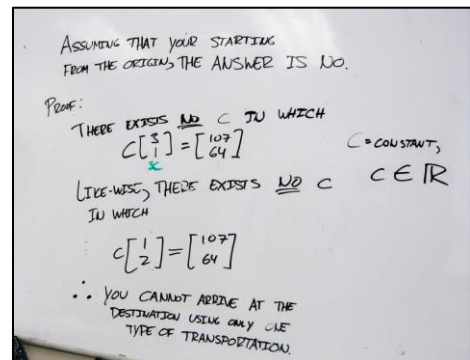 ASSUMING THAT YOUR STARTING
FROM THE ORIGIN, THE ANSWER IS NO.
PROOF:
THERE EXISTS NO C IN WHICH
C[3 1] = [107 64]
x
C = CONSTANT,
C ∈ ℝ
LIKE-WISE, THERE EXISTS NO C
IN WHICH
C[1 2] = [107 64]
∴ YOU CANNOT ARRIVE AT THE
DESTINATION USING ONLY ONE
TYPE OF TRANSPORTATION.